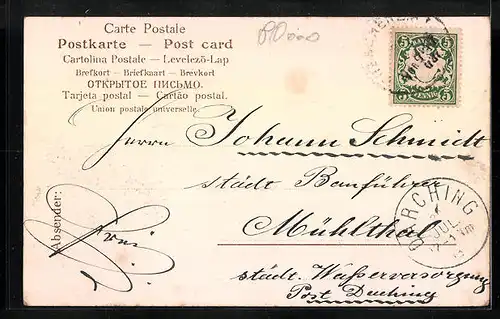 Carte Postale
Postkarte — Post card
Cartolina Postale — Levelező-Lap
Brefkort — Briefkaart — Brevkort
ОТКРЫТОЕ ПИСЬМО.
Tarjeta postal — Cartão postal.
Union postale universelle.
5 5
Herrn Johann Schmidt
städt Bauführer
Mühlthal
städt. Wasserversorgung
Post Darching
DARCHING
JUL
Absender: